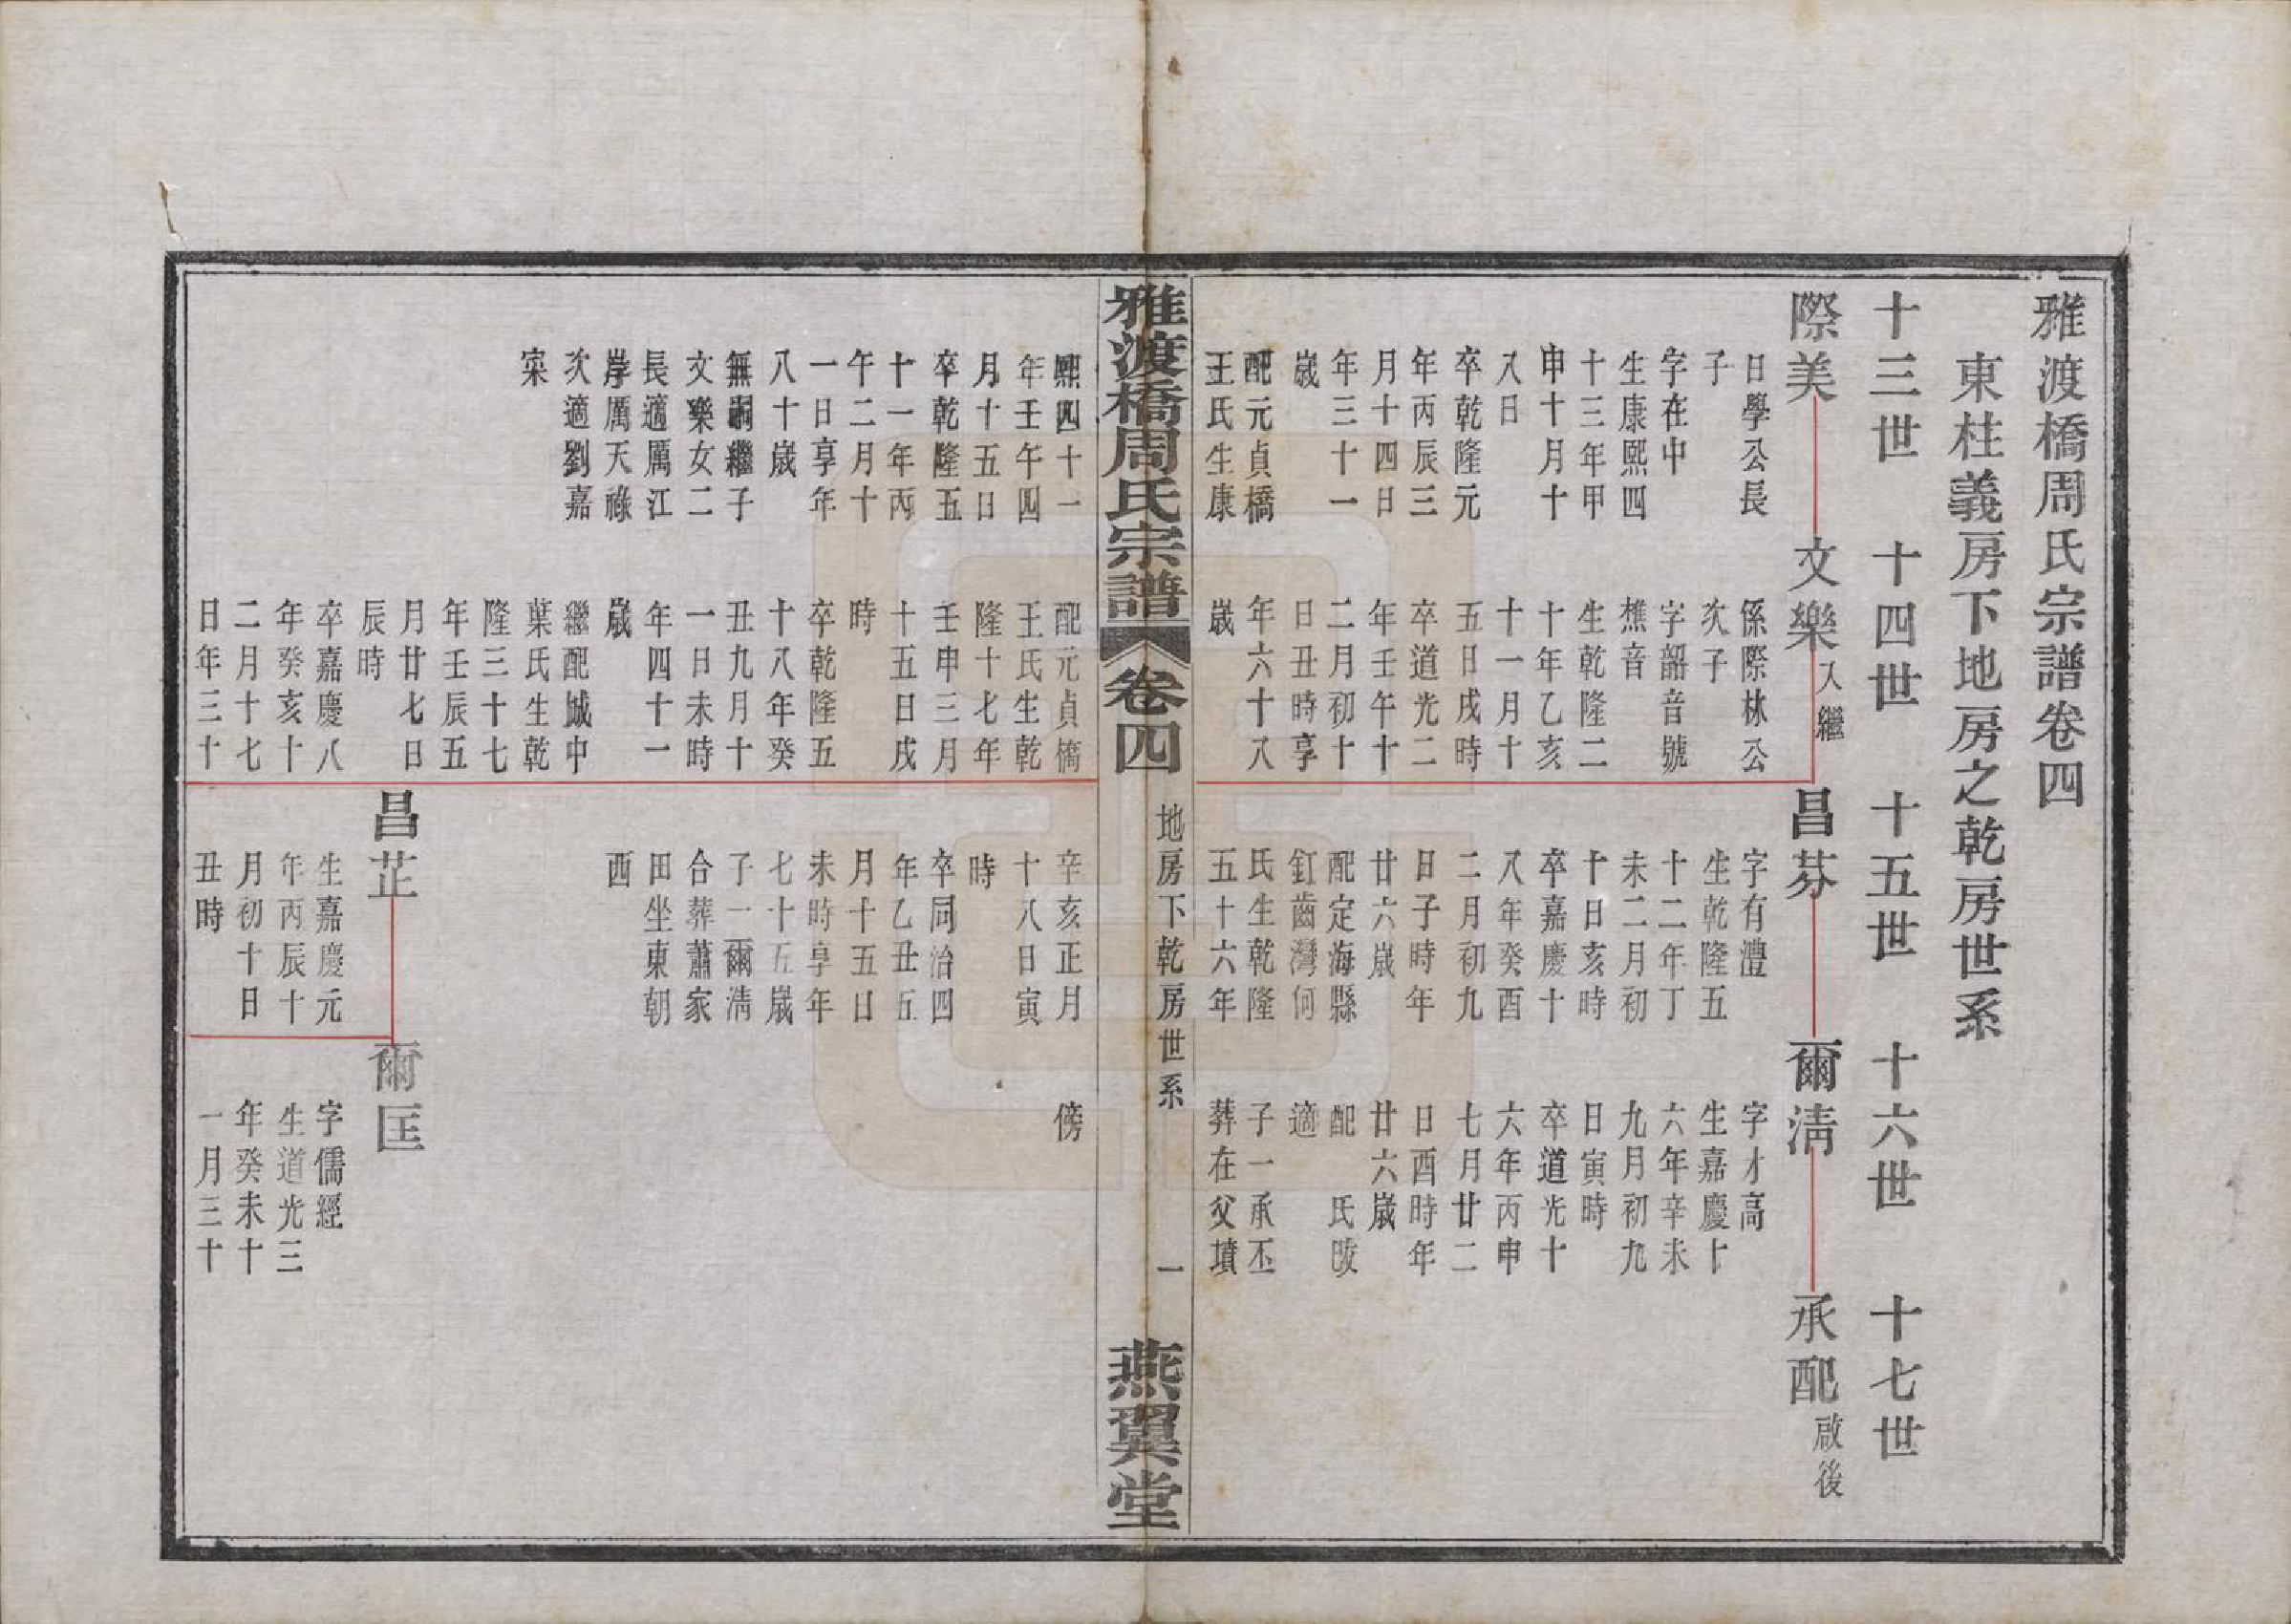 雅渡橋周氏宗譜卷四
東柱義房下地房之乾房世系
十三世
十四世
十五世
十六世
十七世
際美
日學公長
子
字在中
生康熙四
十三年甲
申十月十
八日
卒乾隆元
年丙辰三
月十四日
年三十一
歲
配元貞橋
王氏生康
熙四十一
年壬午四
月十五日
卒乾隆五
十一年丙
午二月十
一日享年
八十歲
無嗣繼子
文樂女二
長適厲江
岸厲天祿
次適劉嘉
寀
文樂入繼
係際林公
次子
字韶音號
樵音
生乾隆二
十年乙亥
十一月十
五日戌時
卒道光二
年壬午十
二月初十
日丑時享
年六十八
歲
配元貞橋
王氏生乾
隆十七年
壬申三月
十五日戌
時
卒乾隆五
十八年癸
丑九月十
一日未時
年四十一
歲
繼配城中
葉氏生乾
隆三十七
年壬辰五
月廿七日
辰時
卒嘉慶八
年癸亥十
二月十七
日年三十
昌芬
字有澧
生乾隆五
十二年丁
未二月初
十日亥時
卒嘉慶十
八年癸酉
二月初九
日子時年
廿六歲
配定海縣
釭齒灣何
氏生乾隆
五十六年
辛亥正月
十八日寅
時
卒同治四
年乙丑五
月十五日
未時享年
七十五歲
子一爾淸
合葬蕭家
田坐東朝
西
昌芷
生嘉慶元
年丙辰十
月初十日
丑時
爾淸
字才高
生嘉慶十
六年辛未
九月初九
日寅時
卒道光十
六年丙申
七月廿二
日酉時年
廿六歲
配　氏改
適
子一承丕
葬在父墳
傍
爾匡
字儒經
生道光三
年癸未十
一月三十
承配啟後
雅渡橋周氏宗譜
卷四
地房下乾房世系
一
燕翼堂